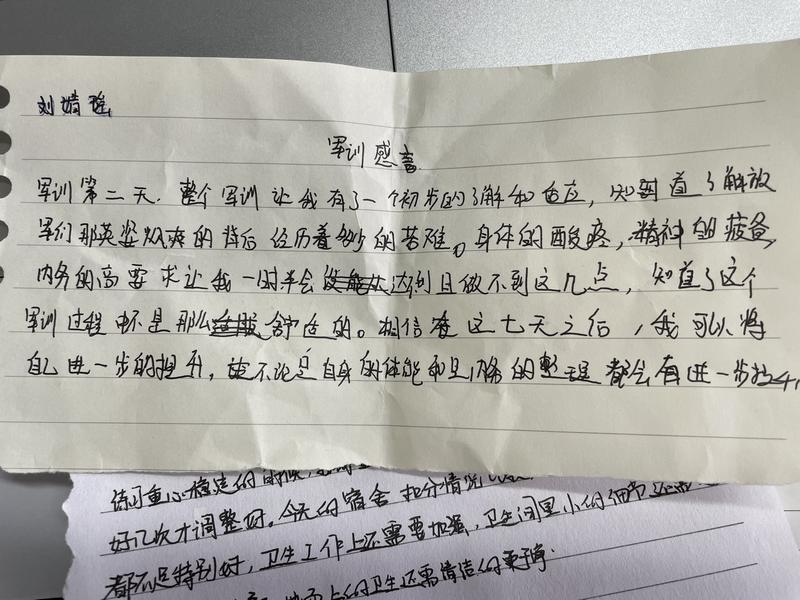 刘婧瑶
军训感言
军训第二天.整个军训让我有了一个初步的了解和适应，知道了解放
军们那英姿飒爽的背后经历着多少的苦难。身体的酸疼，精神的疲惫，
内务的高要求让我一时半会达到且做不到这几点，知道了这个
军训过程中不是那么舒适的。相信在这七天之后，我可以将
自己进一步的提升，论不论是自身的体能和是内务的整理都会有进一步提升，
练习重心稳定的时候，
好几次才调整对。今天的宿舍扣分情况
都不是特别好，卫生工作上还需要加强，卫生间里小的细节还需
的卫生还需清洁的更干净.